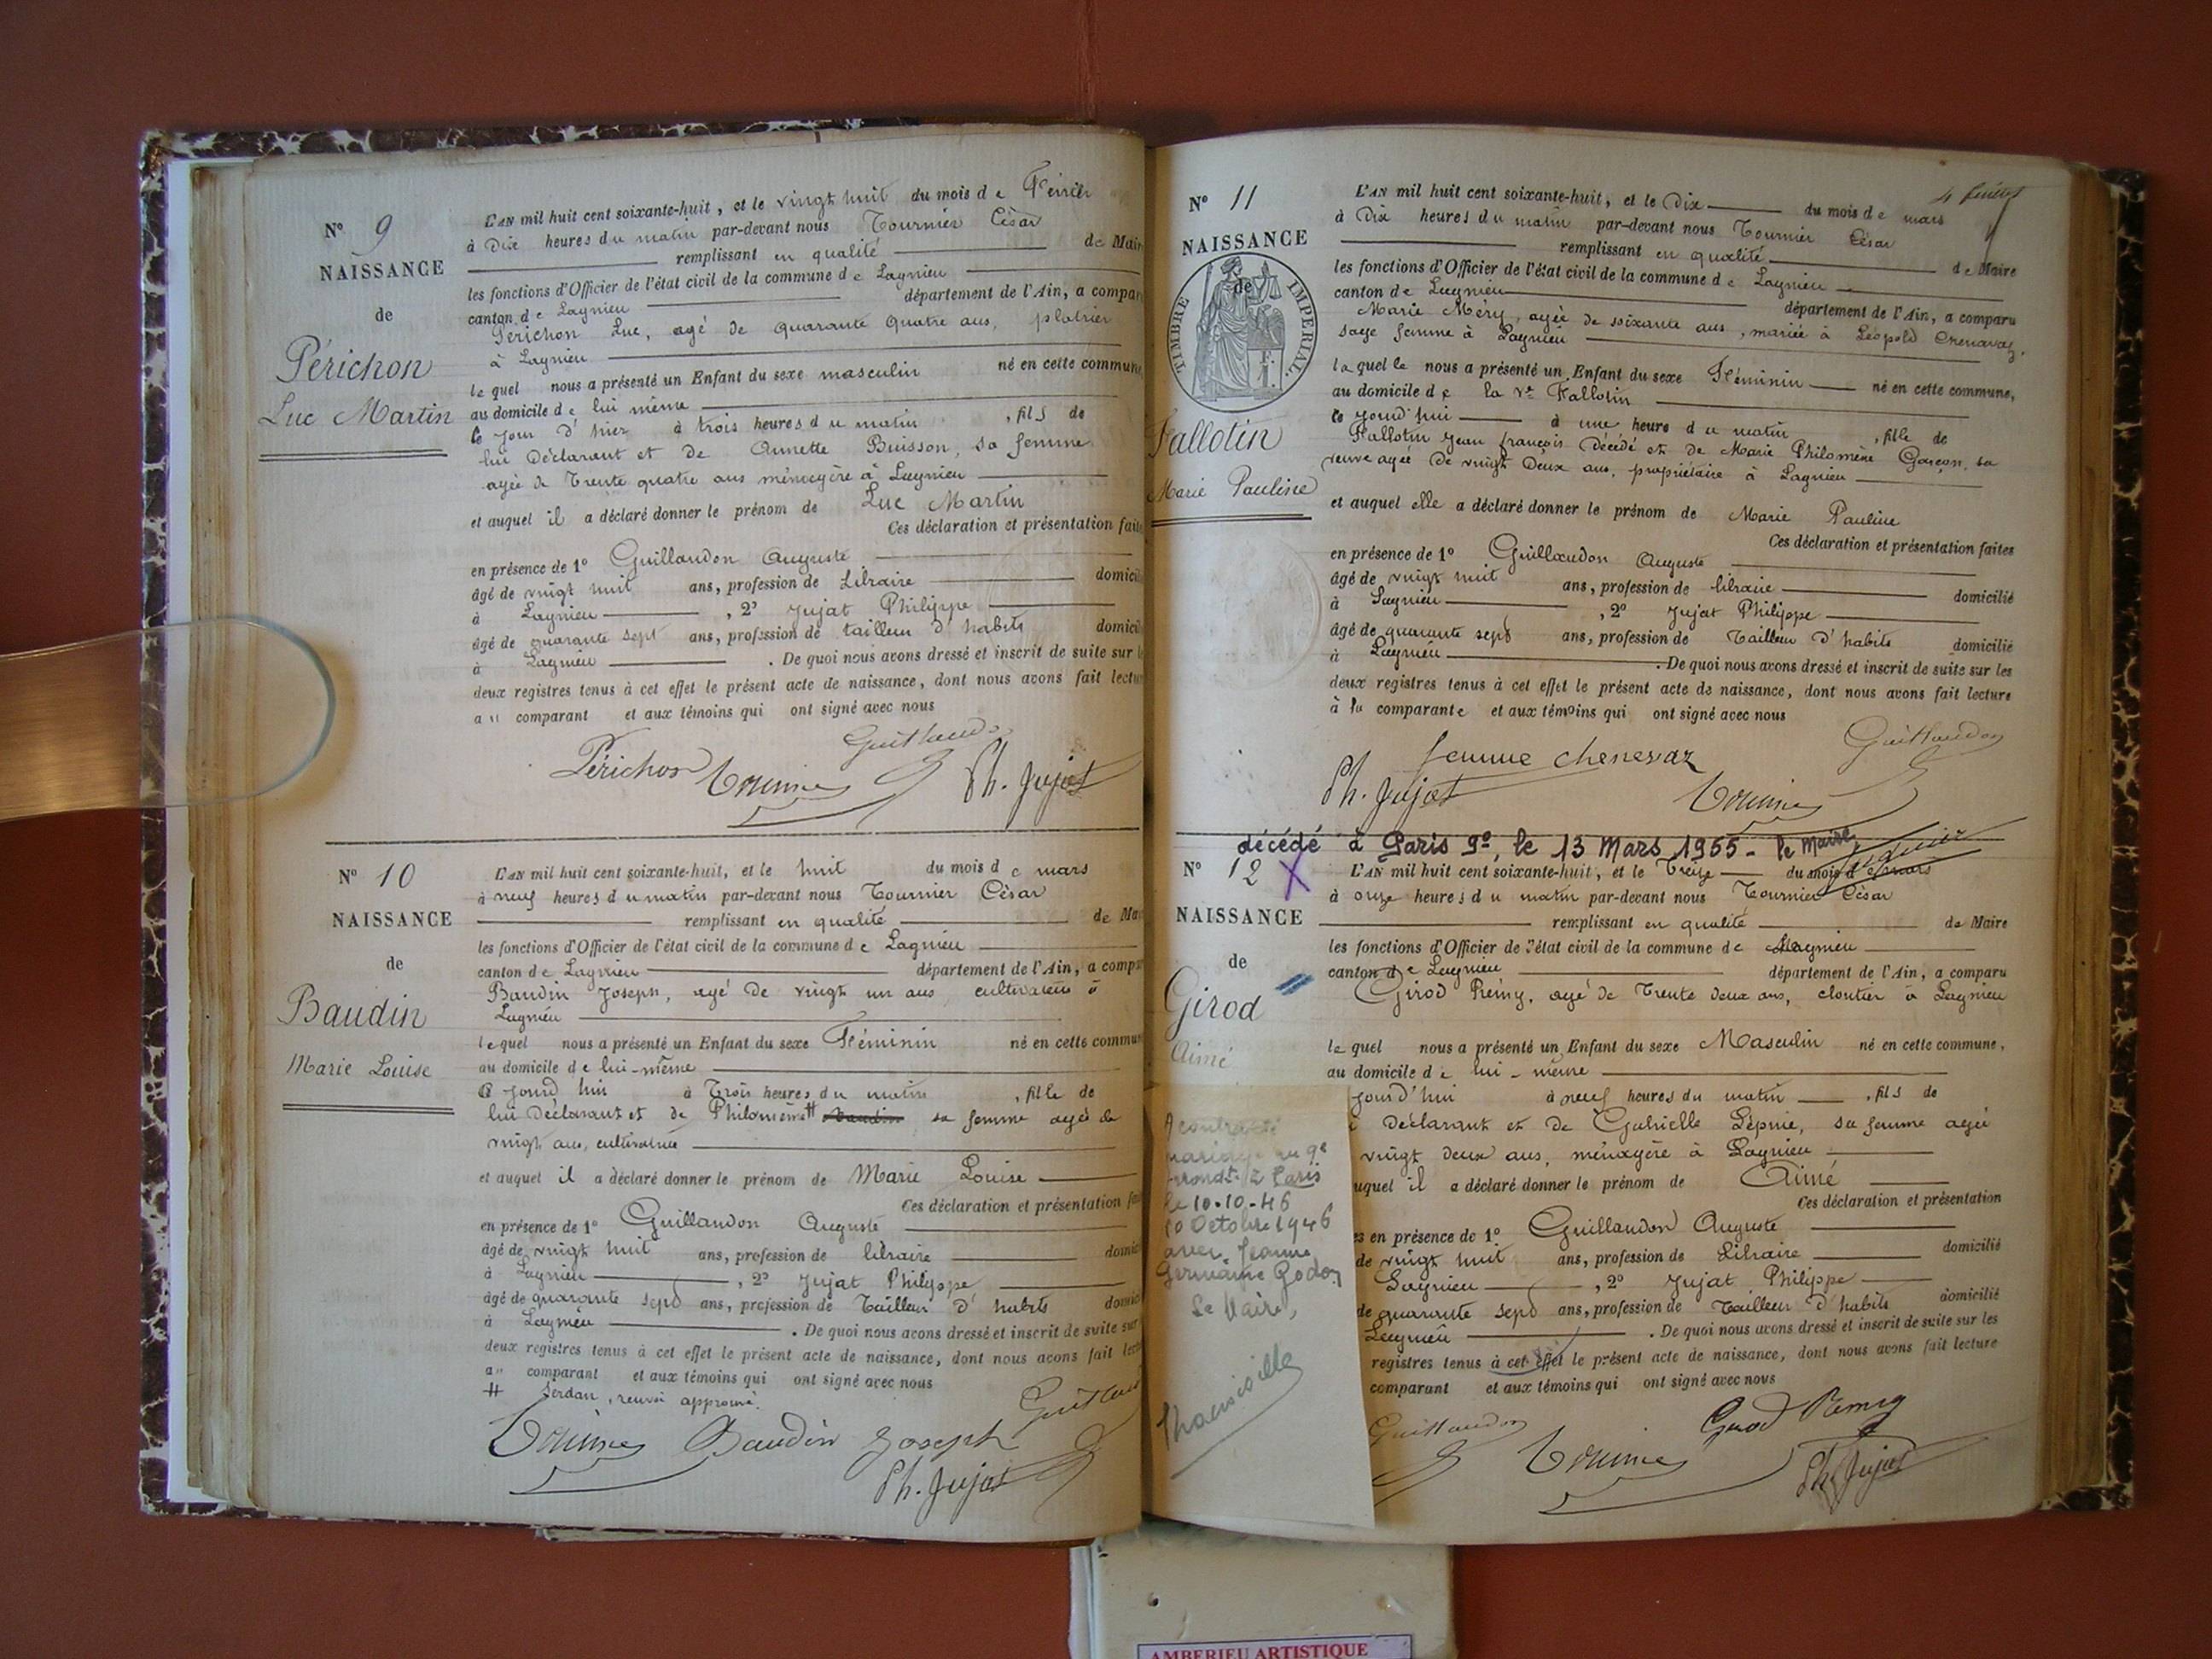 N° 9
NAISSANCE
de
Périchon
Luc Martin
L'AN mil huit cent soixante-huit, et le vingt huit du mois de Février
à Dix heures du matin par-devant nous Tournier César
remplissant en qualité de Mair
les fonctions d'Officier de l'état civil de la commune de Lagnieu
canton de Lagnieu département de l'Ain, a compar
Périchon Luc, agé de quarante quatre ans, platrier
à Lagnieu
lequel nous a présenté un Enfant du sexe masculin né en cette commune
au domicile de lui même
le jour d'hier à trois heures du matin, fils de
lui Déclarant et de Annette Buisson, sa femme
agée de Trente quatre ans ménagère à Lagnieu
et auquel il a déclaré donner le prénom de Luc Martin
Ces déclaration et présentation faite
en présence de 1° Guillaudon Auguste
âgé de vingt huit ans, profession de Libraire domicili
à Lagnieu, 2° Jujat Philippe
âgé de quarante sept ans, profession de tailleur d'habits domicil
à Lagnieu. De quoi nous avons dressé et inscrit de suite sur l
deux registres tenus à cet effet le présent acte de naissance, dont nous avons fait lectur
au comparant et aux témoins qui ont signé avec nous
Guillaudon
Périchon Tournier Ph. Jujat
N° 10
NAISSANCE
de
Baudin
Marie Louise
L'AN mil huit cent soixante-huit, et le huit du mois de mars
à neuf heures du matin par-devant nous Tournier César
remplissant en qualité de Ma
les fonctions d'Officier de l'état civil de la commune de Lagnieu
canton de Lagnieu département de l'Ain, a compar
Baudin Joseph, agé de vingt un ans cultivateur à
Lagnieu
lequel nous a présenté un Enfant du sexe Féminin né en cette commun
au domicile de lui-même
ce jourd'hui à Trois heures du matin, fille de
lui Déclarant et de Philomène # Baudin sa femme agée de
vingt ans, cultivatrice
et auquel il a déclaré donner le prénom de Marie Louise
Ces déclaration et présentation fai
en présence de 1° Guillaudon Auguste
âgé de vingt huit ans, profession de libraire domici
à Lagnieu, 2° Jujat Philippe
âgé de quarante sept ans, profession de Tailleur d'habits domici
à Lagnieu. De quoi nous avons dressé et inscrit de suite sur
deux registres tenus à cet effet le présent acte de naissance, dont nous avons fait lect
au comparant et aux témoins qui ont signé avec nous
# Serdan, renvoi approuvé.
Guillaudon
Tournier Baudin Joseph
Ph. Jujat
4 feuillet
N° 11
NAISSANCE
de
TIMBRE IMPERIAL.
Fallotin
Marie Pauline
L'AN mil huit cent soixante-huit, et le Dix du mois de mars
à Dix heures du matin par-devant nous Tournier César
remplissant en qualité de Maire
les fonctions d'Officier de l'état civil de la commune de Lagnieu
canton de Lagnieu département de l'Ain, a comparu
Marie Méry, agée de soixante ans, mariée à Léopold Chenavaz,
sage femme à Lagnieu
laquelle nous a présenté un Enfant du sexe Féminin né en cette commune,
au domicile de la Ve Fallotin
ce jourd'hui à une heure du matin, fille de
Fallotin Jean françois Décédé et de Marie Philomène Garçon, sa
veuve agée de vingt Deux ans, propriétaire à Lagnieu
et auquel elle a déclaré donner le prénom de Marie Pauline
Ces déclaration et présentation faites
en présence de 1° Guillaudon Auguste
âgé de vingt huit ans, profession de libraire domicilié
à Lagnieu, 2° Jujat Philippe
âgé de quarante sept ans, profession de Tailleur d'habits domicilié
à Lagnieu. De quoi nous avons dressé et inscrit de suite sur les
deux registres tenus à cet effet le présent acte de naissance, dont nous avons fait lecture
à la comparante et aux témoins qui ont signé avec nous
femme chenevaz Guillaudon
Ph. Jujat Tournier
décédé à Paris 9e, le 13 Mars 1955 - le Maire
N° 12
NAISSANCE
de
Girod
Aimé
L'AN mil huit cent soixante-huit, et le Treize du mois de mars
à onze heures du matin par-devant nous Tournier César
remplissant en qualité de Maire
les fonctions d'Officier de l'état civil de la commune de Lagnieu
canton de Lagnieu département de l'Ain, a comparu
Girod Rémy, agé de Trente deux ans, cloutier à Lagnieu
lequel nous a présenté un Enfant du sexe Masculin né en cette commune,
au domicile de lui-même
jourd'hui à neuf heures du matin, fils de
déclarant et de Gabrielle Lépine, sa femme agée
vingt deux ans, ménagère à Lagnieu
uquel il a déclaré donner le prénom de Aimé
Ces déclaration et présentation
es en présence de 1° Guillaudon Auguste
de vingt huit ans, profession de Libraire domicilié
Lagnieu, 2° Jujat Philippe
de quarante sept ans, profession de Tailleur d'habits domicilié
Lagnieu. De quoi nous avons dressé et inscrit de suite sur les
registres tenus à cet effet le présent acte de naissance, dont nous avons fait lecture
comparant et aux témoins qui ont signé avec nous
Guillaudon Tournier Girod Remy
Ph. Jujat
A contracté
mariage au 9e
arrondt à Paris
le 10-10-46
10 Octobre 1946
avec Jeanne
Germaine Godon
Le Maire,
AMBERIEU ARTISTIQUE